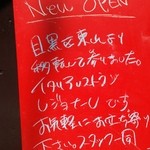 New OPEN
目黒区東山より
移転して参りました。
イタリアレストラン
レジョナーレです
お気軽にお立ち寄り
下さい。スタッフ一同